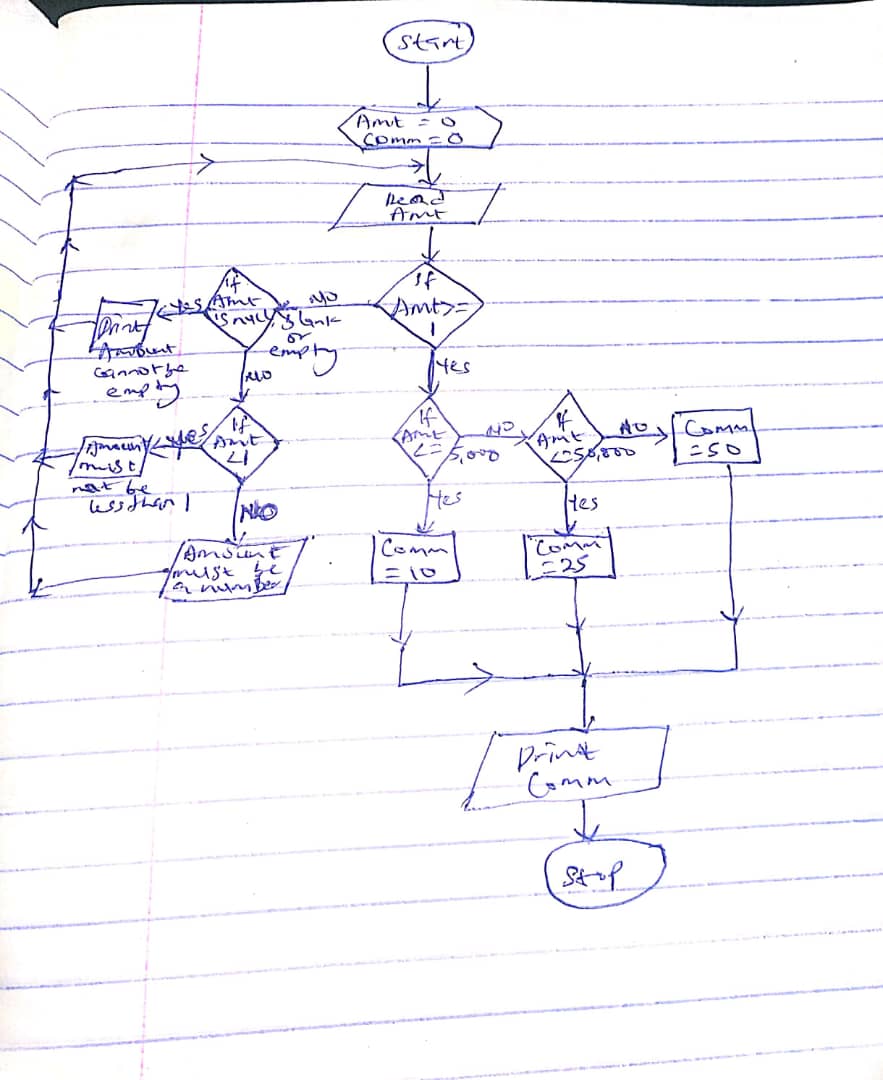 Start
Amt = 0
Comm = 0
Read
Amt
If
Amt>=
1
NO
If
Amt
is null, blank
or
empty
Yes
Print
Amount
cannot be
empty
NO
If
Amt
<1
Yes
Amount
must
not be
less than 1
NO
Amount
must be
a number
Yes
If
Amt
<= 5,000
NO
If
Amt
<=50,000
NO
Comm
=50
Yes
Comm
=10
Yes
Comm
=25
Print
Comm
Stop